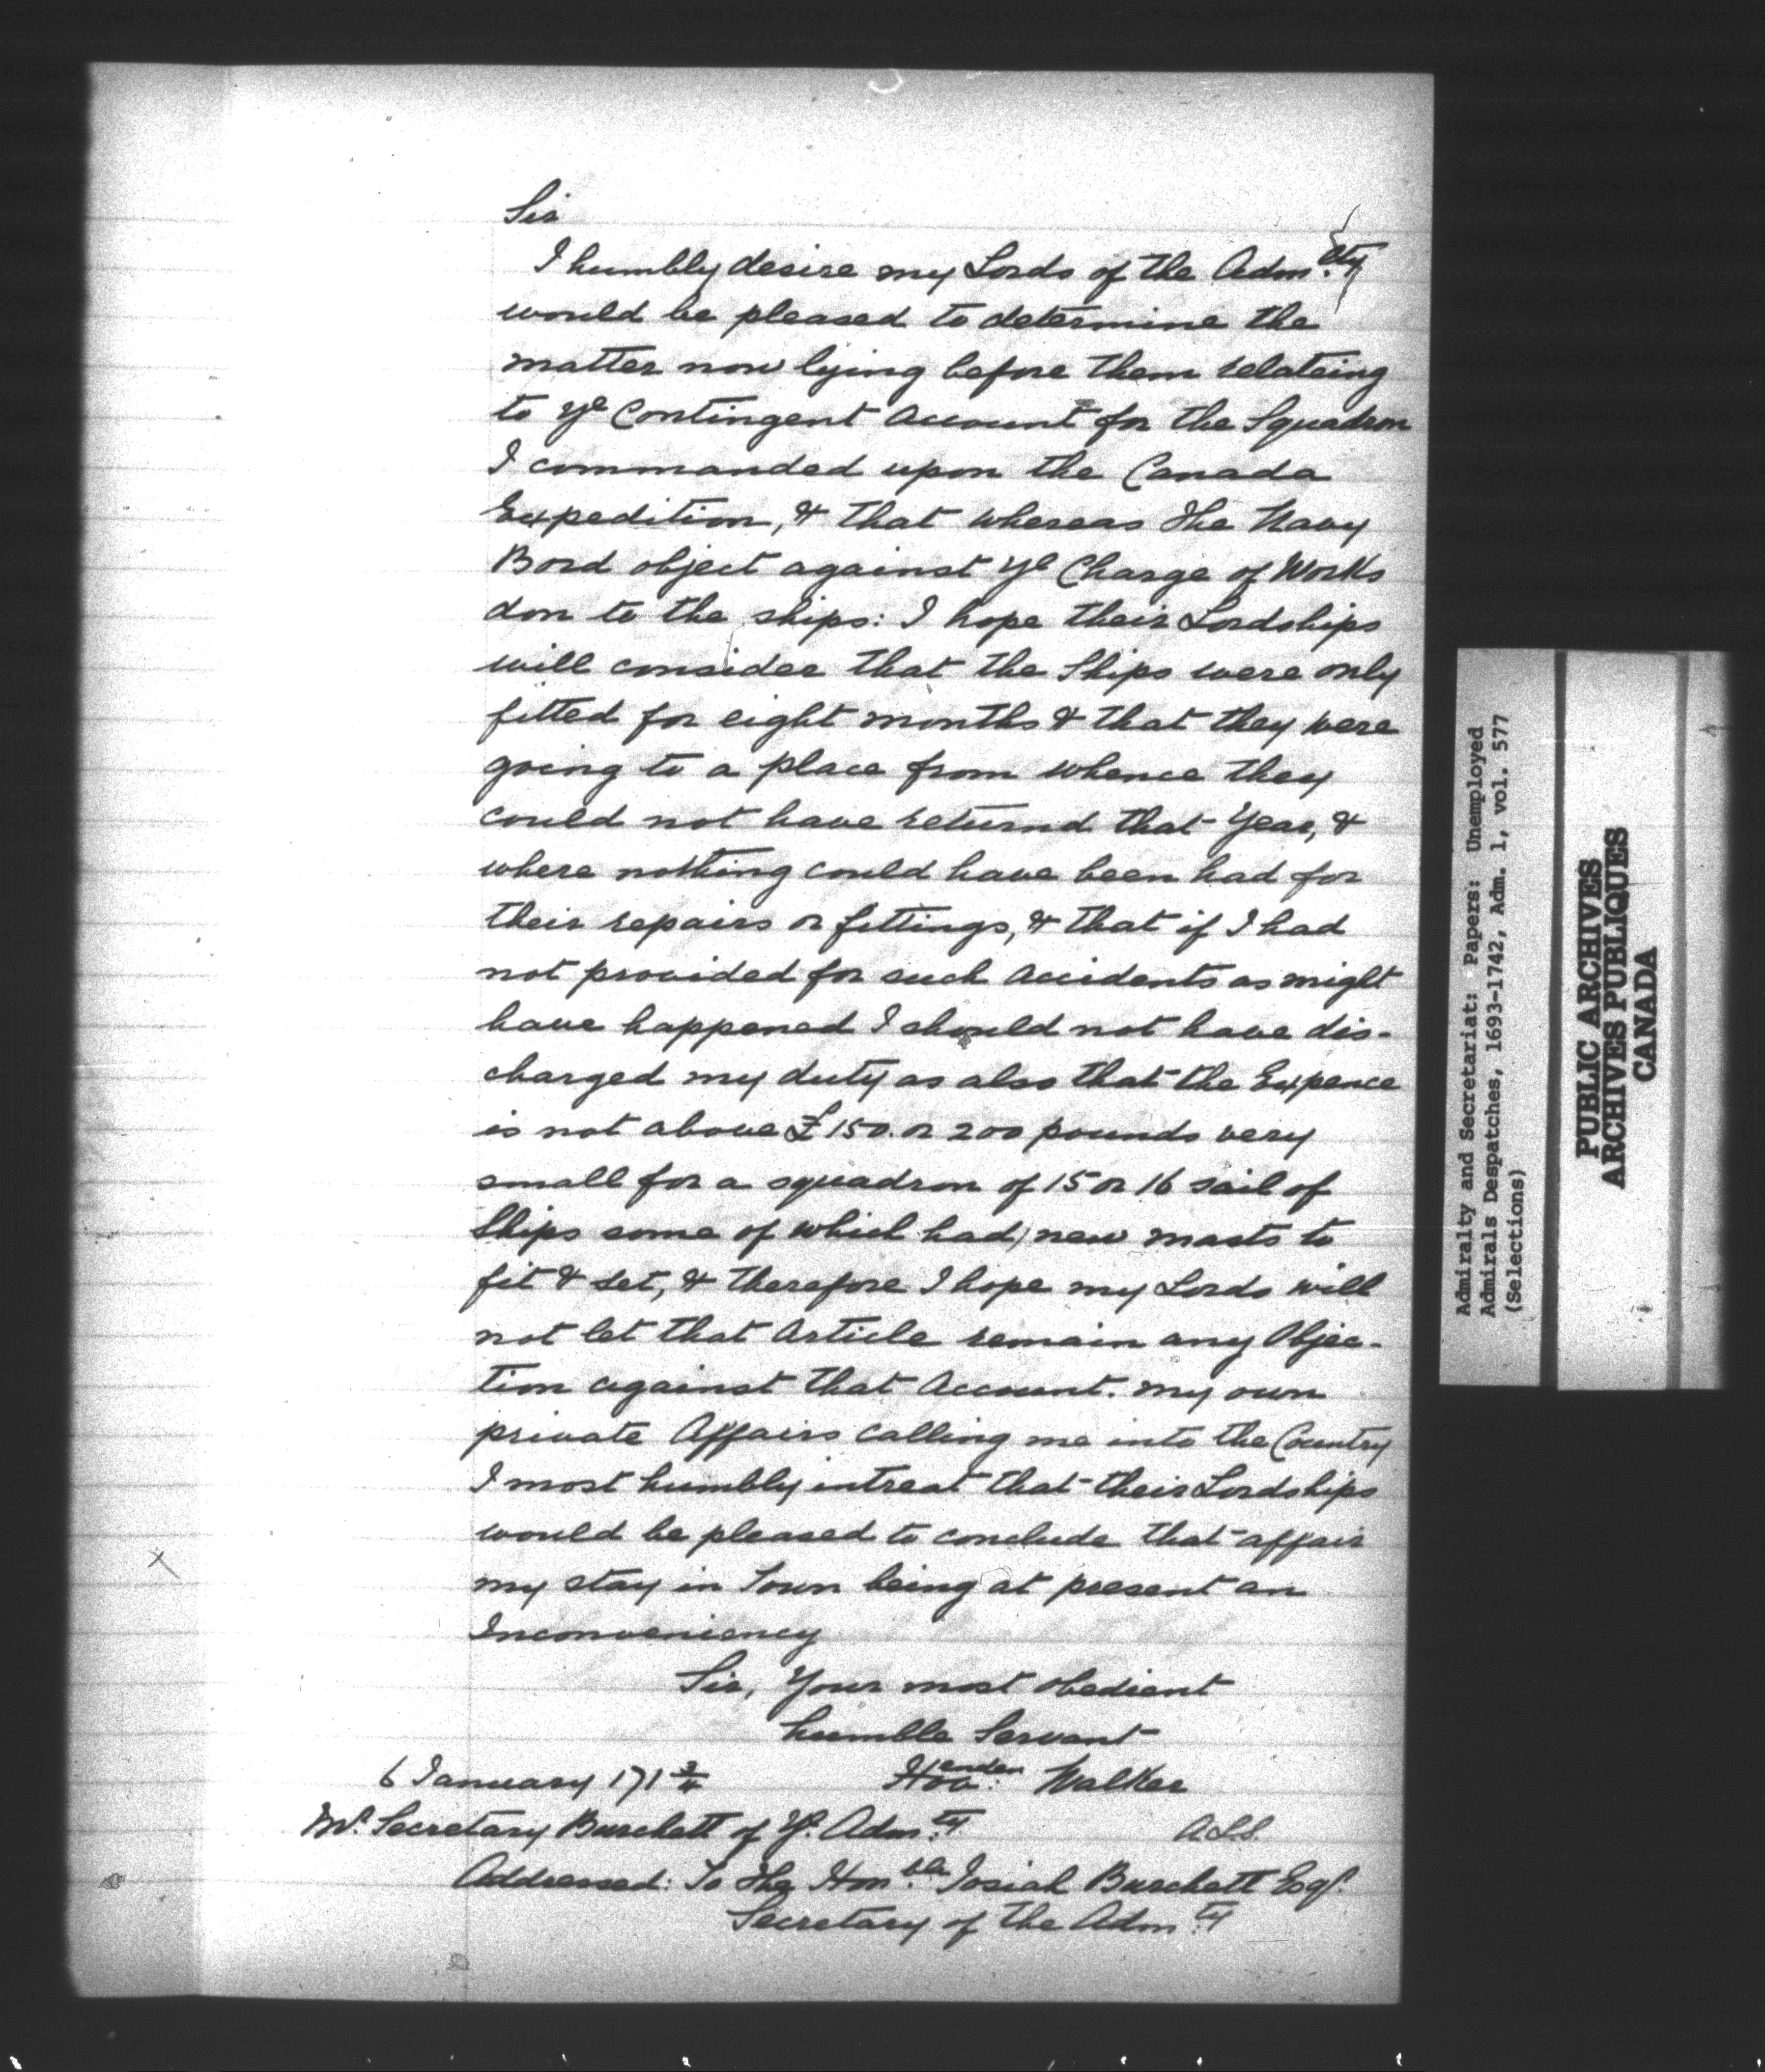 Sir
I humbly desire my Lords of the Adm.alty
would be pleased to determine the
matter now lying before them relateing
to ye Contingent Account for the Squadron
I commanded upon the Canada
Expedition, & that whereas the Navy
Bord object against ye Charge of Works
don to the ships: I hope their Lordships
will consider that the Ships were only
fitted for eight months & that they were
going to a place from whence they
could not have returnd that Year, &
where nothing could have been had for
their repairs or fittings, & that if I had
not provided for such Accidents as might
have happened I should not have dis-
charged my duty as also that the Expence
is not above £150. or 200 pounds very
small for a squadron of 15 or 16 sail of
Ships some of which had new masts to
fit & set, & therefore I hope my Lords will
not let that Article remain any Objec-
tion against that Account. my own
private Affairs calling me into the Country
I most humbly intreat that their Lordships
would be pleased to conclude that affair
my stay in Town being at present an
Inconveniency
Sir, Your most obedient
humble Servant
6 January 171 3/4 Hovenden: Walker
Mr. Secretary Burchett of ye. Adm.ty A.L.S.
Addressed: To the Hon.ble Josiah Burchett Esqr.
Secretary of the Adm.ty
Admiralty and Secretariat: Papers: Unemployed
Admirals Despatches, 1693-1742, Adm. 1, vol. 577
(Selections)
PUBLIC ARCHIVES
ARCHIVES PUBLIQUES
CANADA